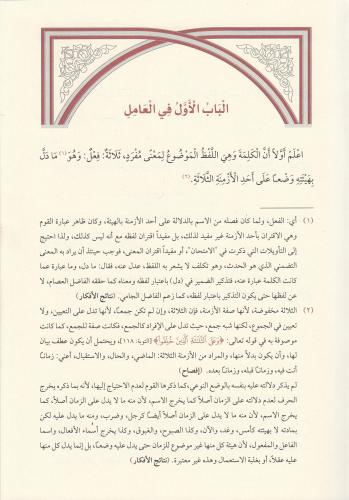 الْبَابُ الْأَوَّلُ فِي الْعَامِلِ
اعْلَمْ أَوَّلاً أَنَّ الْكَلِمَةَ وَهِيَ اللَّفْظُ الْمَوْضُوعُ لِمَعْنًى مُفْرَدٍ، ثَلَاثَةٌ: فِعْلٌ: وَهُوَ (١) مَا دَلَّ
بِهَيْئَتِهِ وَضْعاً عَلَى أَحَدِ الْأَزْمِنَةِ الثَّلَاثَةِ. (٢)
(١) أي: الفعل، ولما كان فصله من الاسم بالدلالة على أحد الأزمنة بالهيئة، وكان ظاهر عبارة القوم
وهي الاقتران بأحد الأزمنة غير مفيد لذلك، بل مفيداً اقتران لفظه مع أنه ليس كذلك، ولذا احتيج
إلى التأويلات التي ذكرت في "الامتحان"، أو مفيداً اقتران المعنى، فوجب حينئذ أن يراد به المعنى
التضمني الذي هو الحدث، وهو تكلف لا يشعر به اللفظ، عدل عنه، فقال: ما دل، وما عبارة عما
كانت الكلمة عنه، فتذكير الضمير في (دل) باعتبار لفظه ومعناه كما حققه الفاضل العصام، لا
عن لفظها حتى يكون التذكير باعتبار لفظه، كما زعم الفاضل الجامي. (نتائج الأفكار)
(٢) الثلاثة مخفوضة، لأنها صفة الأزمنة، فإن الثلاثة، وإن لم تكن جمعاً، لأنها تدل على التعيين، ولا
تعيين في الجموع، لكنها شبه جمع، حيث تدل على الإفراد كالجمع، فكانت صفة للجمع، كما كانت
موصوفة به في قوله تعالى: ﴿وَعَلَى الثَّلَاثَةِ الَّذِينَ خُلِّفُوا﴾ [التوبة: ١١٨]، ويحتمل أن يكون عطف بيان
لها، وأن يكون بدلاً منها، والمراد من الأزمنة الثلاثة: الماضي، والحال، والاستقبال، أعني: زماناً
أنت فيه، وزماناً قبله، وزماناً بعده. (إفصاح)
لم يذكر دلالته عليه بنفسه بالوضع النوعي، كما ذكرها القوم لعدم الاحتياج إليها، لأنه بما ذكره يخرج
الحرف لعدم دلالته على الزمان أصلاً كما يخرج الاسم، لأن منه ما لا يدل على الزمان أصلاً، كما
يخرج الاسم، لأن منه ما لا يدل على الزمان أصلاً أيضاً كرجل، وضرب، ومنه ما يدل عليه لكن
بمادته لا بهيئته كأمس، وغد، والآن، وكذا الصبوح، والغبوق، وكذا يخرج أسماء الأفعال، واسما
الفاعل والمفعول، لأن هيئة كل منها غير موضوع للزمان حتى يدل عليه وضعاً، بل إنما يدل كل منها
عليه عقلاً، أو بغلبة الاستعمال وهذه غير معتبرة. (نتائج الأفكار)